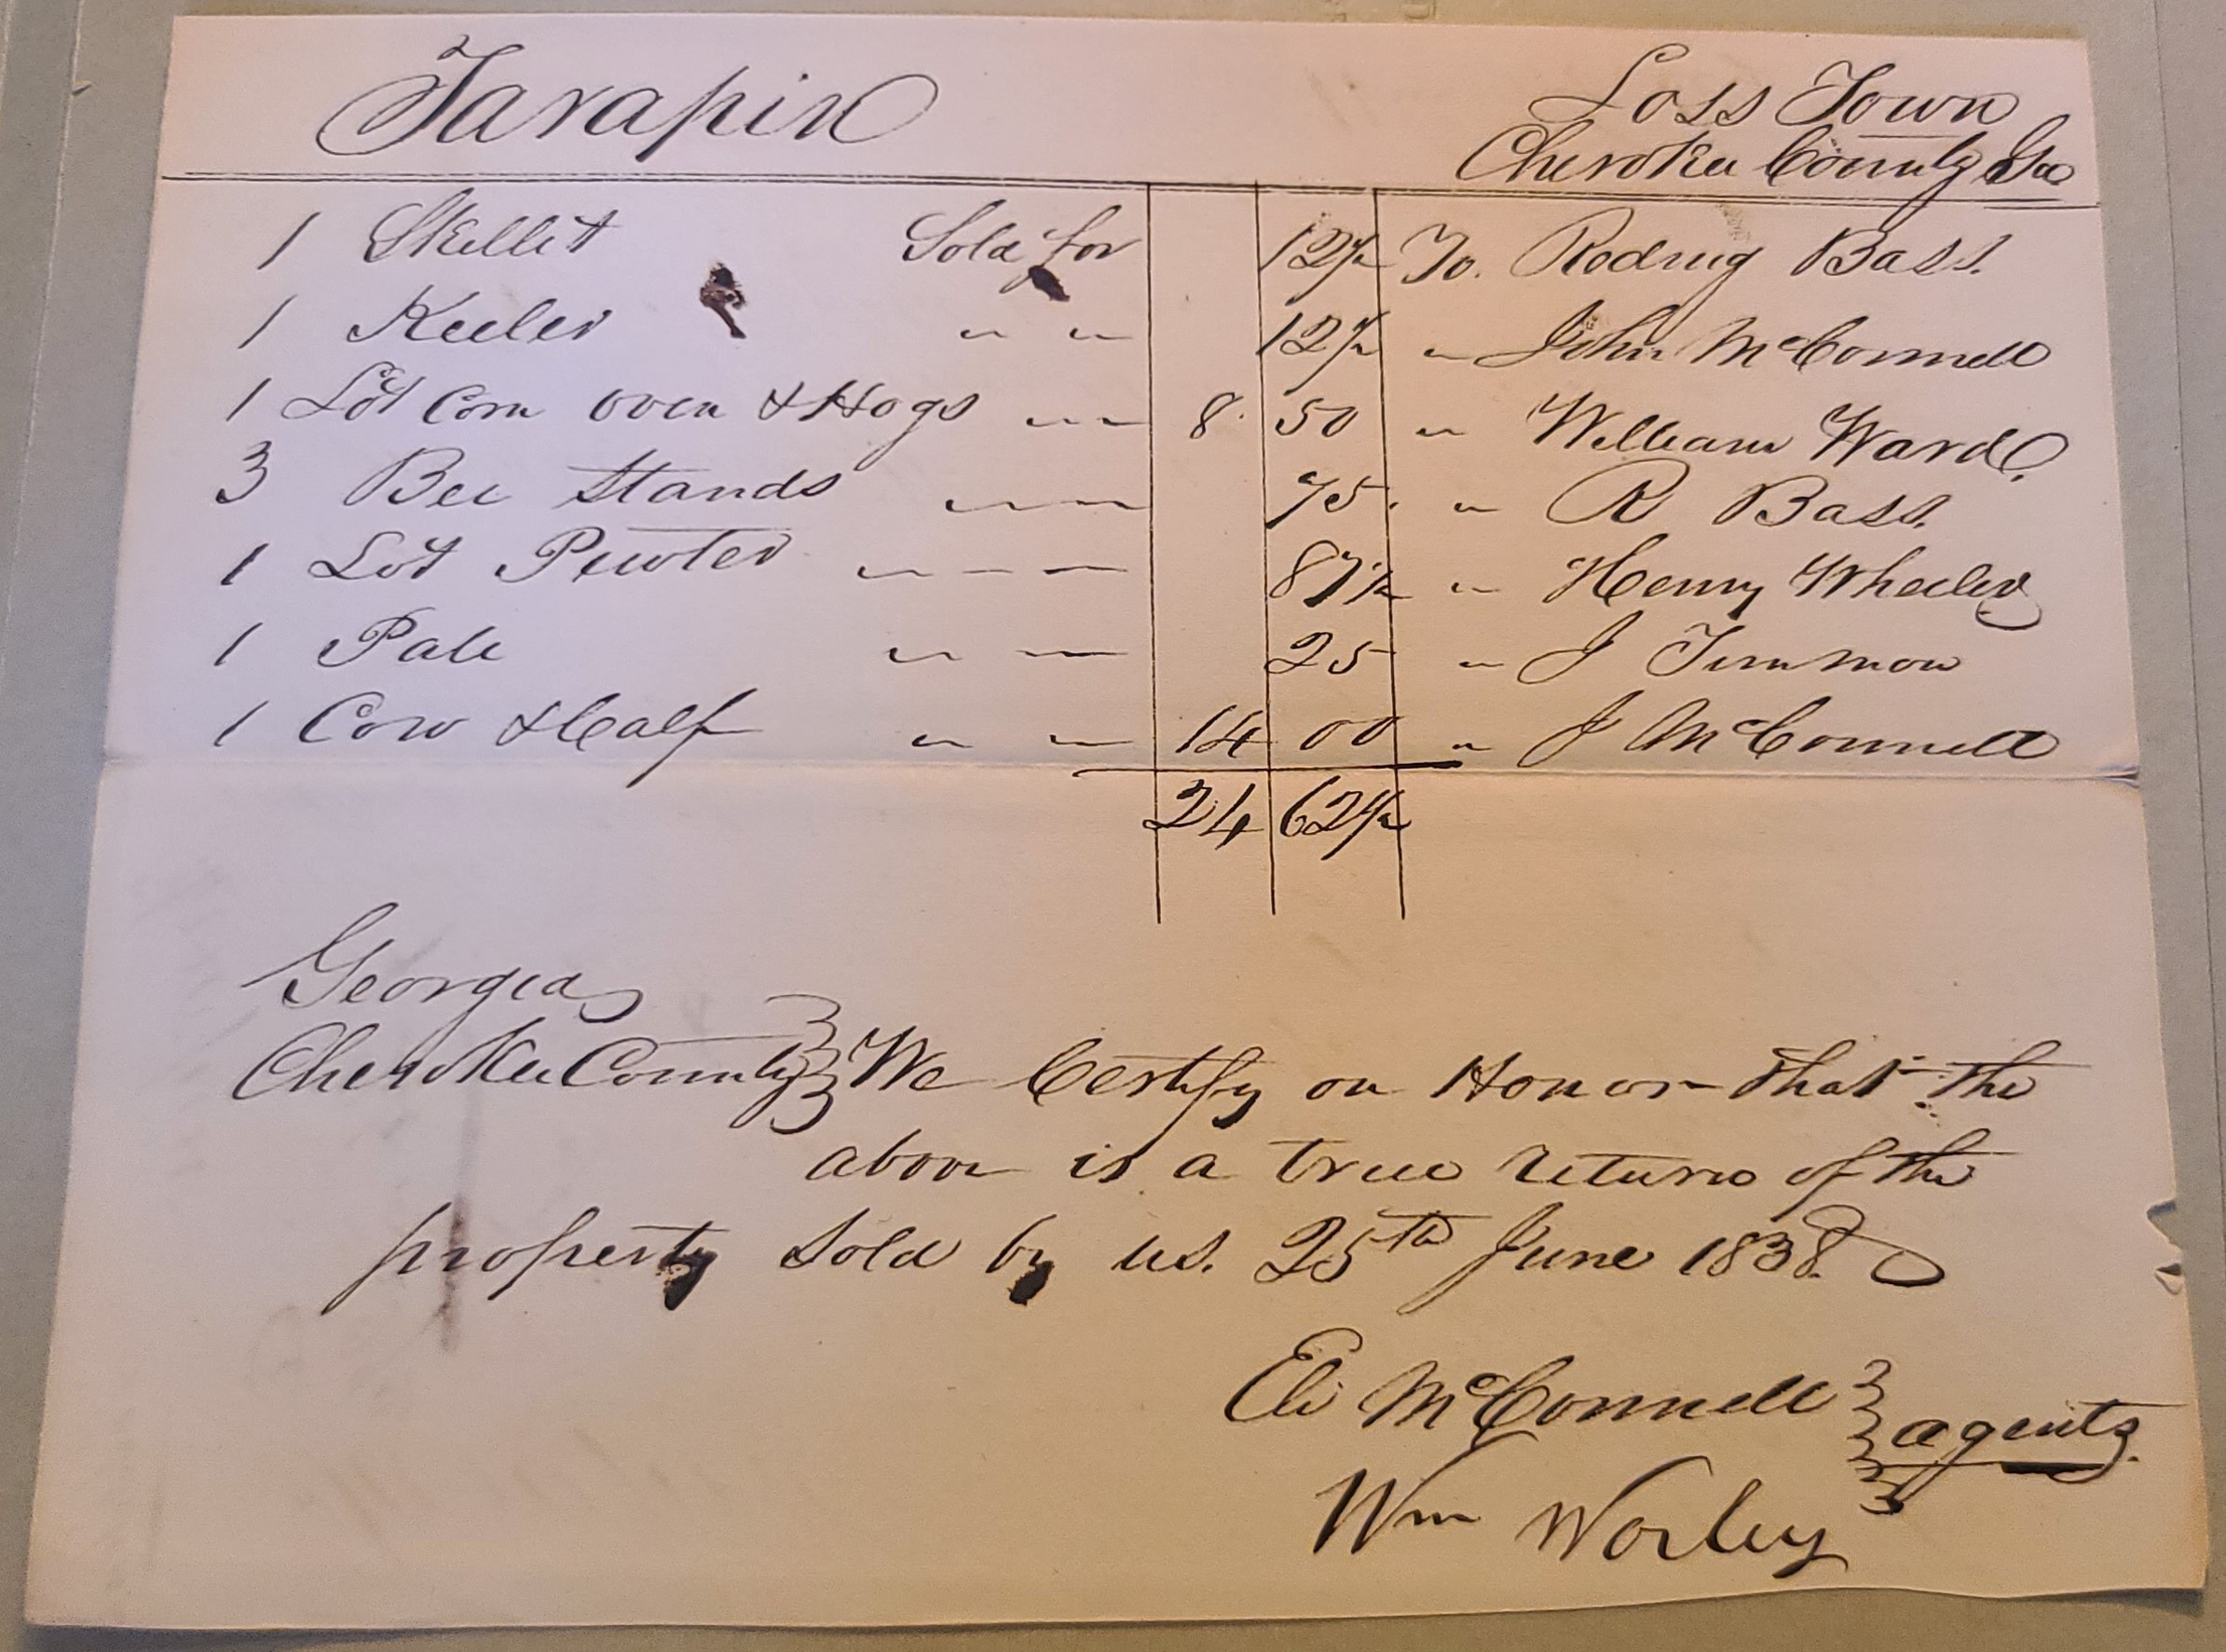 Tarapin
Loss Town
Cherokee County Ga
1 Skillit Sold for 12½ To. Rodrug Bass.
1 Keeler " " 12½ " John McConnell
1 Lot Corn oven & Hogs " " 8. 50 " William Ward.
3 Bee Stands " " 75. " R Bass.
1 Lot Pewter " " " 87½ " Henry Wheeler
1 Pale " " 25 " J Timmon
1 Cow & Calf " " 14 00 " J McConnell
24 62½
Georgia
Cherokee County We Certify on Honor that the
above is a true return of the
property sold by us. 25th June 1838.
Eli McConnell
agents.
Wm Worley